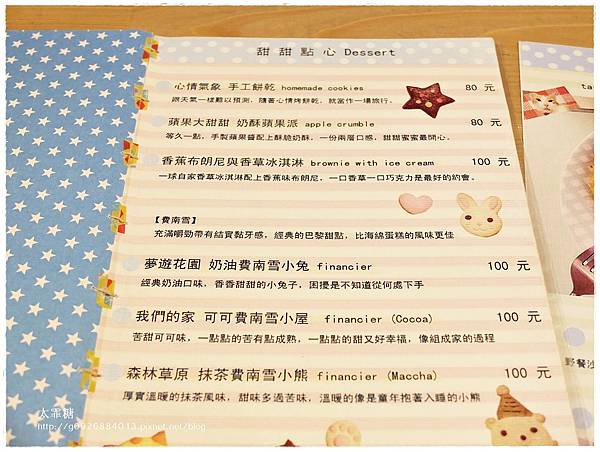 甜甜點心 Dessert
心情氣象 手工餅乾 homemade cookies 80 元
跟天氣一樣難以預測，隨著心情烤餅乾，就當作一場旅行。
蘋果大甜甜 奶酥蘋果派 apple crumble 80 元
等久一點，手製蘋果醬配上酥脆奶酥，一份兩層口感，甜甜蜜蜜最開心。
香蕉布朗尼與香草冰淇淋 brownie with ice cream 100 元
一球自家香草冰淇淋配上香蕉味布朗尼，一口香草一口巧克力是最好的約會。
【費南雪】
充滿嚼勁帶有結實黏牙感，經典的巴黎甜點，比海綿蛋糕的風味更佳
夢遊花園 奶油費南雪小兔 financier 100 元
經典奶油口味，香香甜甜的小兔子，困擾是不知道從何處下手
我們的家 可可費南雪小屋 financier (Cocoa) 100 元
苦甜可可味，一點點的苦有點成熟，一點點的甜又好幸福，像組成家的過程
森林草原 抹茶費南雪小熊 financier (Maccha) 100 元
厚實溫暖的抹茶風味，甜味多過苦味，溫暖的像是童年抱著入睡的小熊
ta
野餐沙
太霏糖
http://g0926884013.pixnet.net/blog